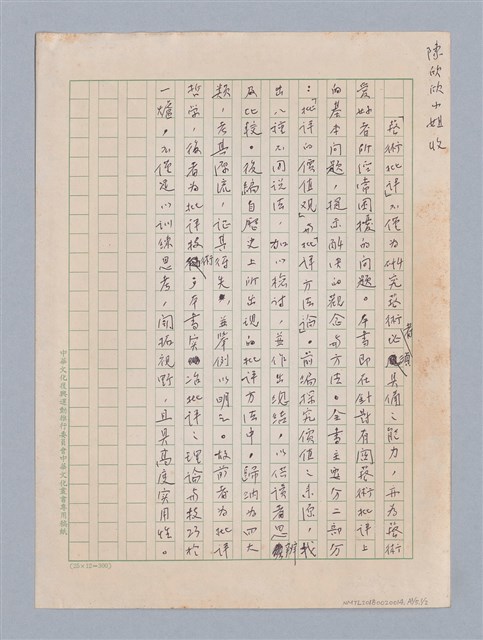 陳欣欣小姐收
「藝術批評」不僅為研究藝術者必須具備之能力，亦為藝術
愛好者所經常困擾的問題。本書即在針對有關藝術批評上
的基本問題，提示解決的觀念與方法。全書主要分二部分
：「批評的價值觀」與「批評方法論」。前編探究價值之來源，找
出八種不同說法，加以檢討，並作出總結，以供讀者思辨
及比較。後編自歷史上所出現的批評方法中，歸納為四大
類，考其源流，証其得失，並舉例以明之。故前者為批評
哲學，後者為批評技術，本書實冶批評之理論與技巧於
一爐，不僅足以訓練思考，開拓視野，且具高度實用性。
中華文化復興運動推行委員會中華文化叢書專用稿紙
(25×12=300)